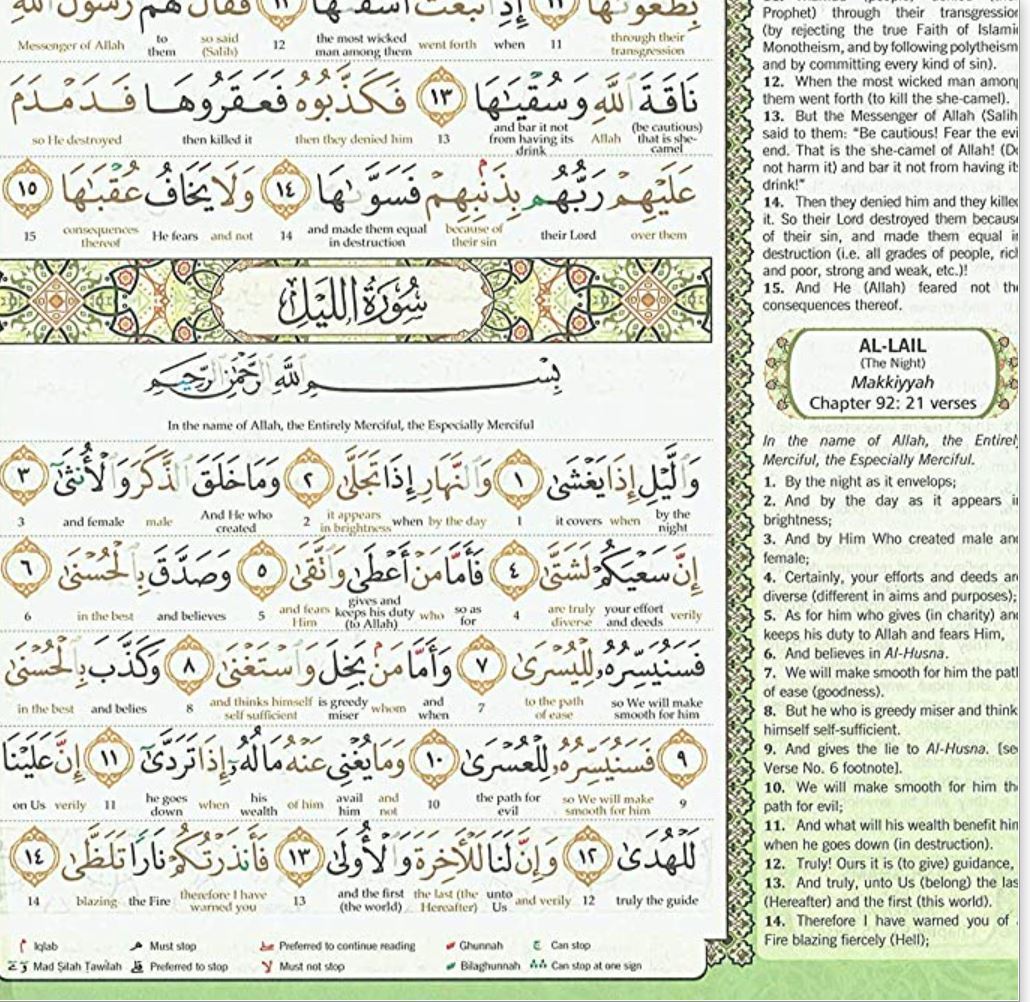 بِطَغْوَىٰهَا ١١ إِذِ انْبَعَثَ أَشْقَىٰهَا ١٢ فَقَالَ لَهُمْ رَسُولُ اللَّهِ
through their transgression 11 when went forth the most wicked man among them 12 so said (Salih) to them Messenger of Allah
نَاقَةَ اللَّهِ وَسُقْيَٰهَا ١٣ فَكَذَّبُوهُ فَعَقَرُوهَا فَدَمْدَمَ
(be cautious) that is she-camel Allah and bar it not from having its drink 13 then they denied him then killed it so He destroyed
عَلَيْهِمْ رَبُّهُم بِذَنۢبِهِمْ فَسَوَّىٰهَا ١٤ وَلَا يَخَافُ عُقْبَٰهَا ١٥
over them their Lord because of their sin and made them equal in destruction 14 and not He fears consequences thereof 15
سُورَةُ اللَّيْلِ
بِسْمِ اللَّهِ الرَّحْمَٰنِ الرَّحِيمِ
In the name of Allah, the Entirely Merciful, the Especially Merciful
وَاللَّيْلِ إِذَا يَغْشَىٰ ١ وَالنَّهَارِ إِذَا تَجَلَّىٰ ٢ وَمَا خَلَقَ الذَّكَرَ وَالْأُنثَىٰٓ ٣
by the night when it covers 1 by the day when it appears in brightness 2 And He who created male and female 3
إِنَّ سَعْيَكُمْ لَشَتَّىٰ ٤ فَأَمَّا مَنْ أَعْطَىٰ وَاتَّقَىٰ ٥ وَصَدَّقَ بِالْحُسْنَىٰ ٦
verily your effort and deeds are truly diverse 4 so as for who gives and keeps his duty (to Allah) and fears Him 5 and believes in the best 6
فَسَنُيَسِّرُهُۥ لِلْيُسْرَىٰ ٧ وَأَمَّا مَنۢ بَخِلَ وَاسْتَغْنَىٰ ٨ وَكَذَّبَ بِالْحُسْنَىٰ
so We will make smooth for him to the path of ease 7 and when whom is greedy miser and thinks himself self sufficient 8 and belies in the best
٩ فَسَنُيَسِّرُهُۥ لِلْعُسْرَىٰ ١٠ وَمَا يُغْنِي عَنْهُ مَالُهُۥٓ إِذَا تَرَدَّىٰٓ ١١ إِنَّ عَلَيْنَا
9 so We will make smooth for him the path for evil 10 and not avail him of him his wealth when he goes down 11 verily on Us
لَلْهُدَىٰ ١٢ وَإِنَّ لَنَا لَلْآخِرَةَ وَالْأُولَىٰ ١٣ فَأَنذَرْتُكُمْ نَارًا تَلَظَّىٰ ١٤
truly the guide 12 and verily unto Us the last (the Hereafter) and the first (the world) 13 therefore I have warned you the Fire blazing 14
Iqlab Must stop Preferred to continue reading Ghunnah Can stop
Mad Silah Tawilah Preferred to stop Must not stop Bilaghunnah Can stop at one sign
Prophet) through their transgression
(by rejecting the true Faith of Islamic
Monotheism, and by following polytheism,
and by committing every kind of sin).
12. When the most wicked man among
them went forth (to kill the she-camel).
13. But the Messenger of Allah (Salih)
said to them: "Be cautious! Fear the evil
end. That is the she-camel of Allah! (Do
not harm it) and bar it not from having its
drink!"
14. Then they denied him and they killed
it. So their Lord destroyed them because
of their sin, and made them equal in
destruction (i.e. all grades of people, rich
and poor, strong and weak, etc.)!
15. And He (Allah) feared not the
consequences thereof.
AL-LAIL
(The Night)
Makkiyyah
Chapter 92: 21 verses
In the name of Allah, the Entirely
Merciful, the Especially Merciful.
1. By the night as it envelops;
2. And by the day as it appears in
brightness;
3. And by Him Who created male and
female;
4. Certainly, your efforts and deeds are
diverse (different in aims and purposes);
5. As for him who gives (in charity) and
keeps his duty to Allah and fears Him,
6. And believes in Al-Husna.
7. We will make smooth for him the path
of ease (goodness).
8. But he who is greedy miser and thinks
himself self-sufficient.
9. And gives the lie to Al-Husna. [see
Verse No. 6 footnote].
10. We will make smooth for him the
path for evil;
11. And what will his wealth benefit him
when he goes down (in destruction).
12. Truly! Ours it is (to give) guidance,
13. And truly, unto Us (belong) the last
(Hereafter) and the first (this world).
14. Therefore I have warned you of
Fire blazing fiercely (Hell);